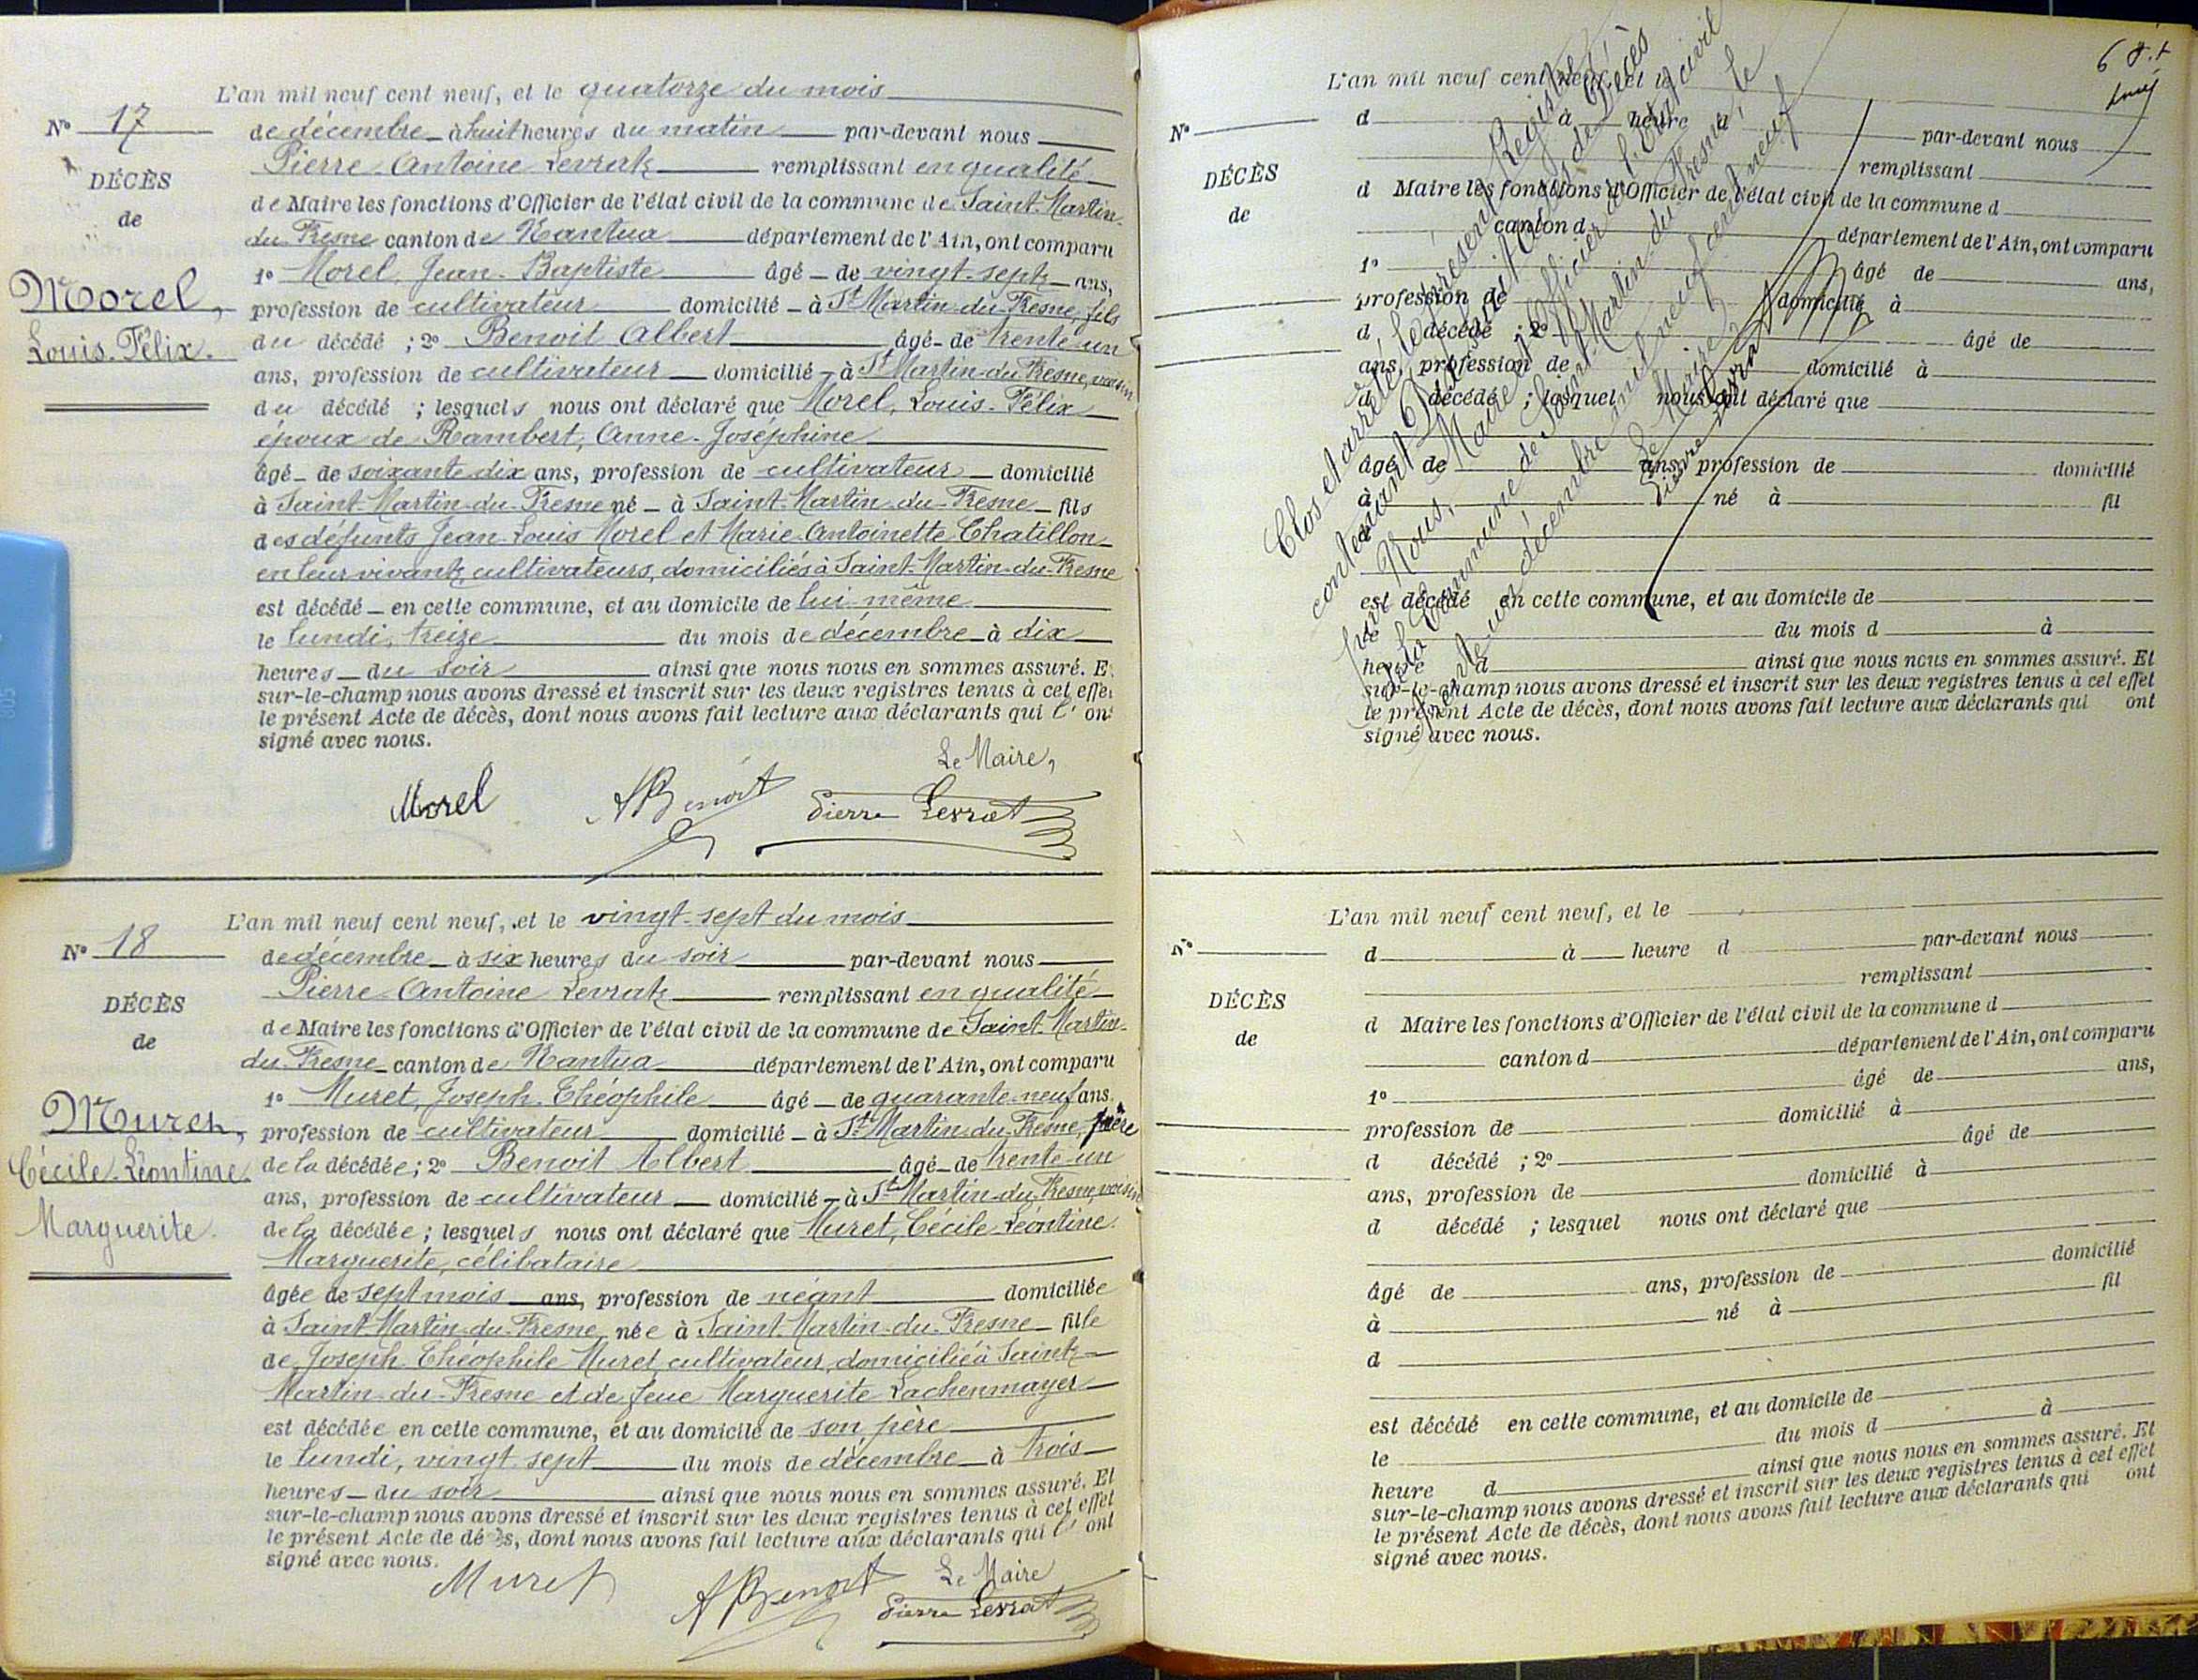 L'an mil neuf cent neuf, et le quatorze du mois
N° 17
de décembre à huit heures du matin par-devant nous
Pierre-Antoine Levrat remplissant en qualité
DÉCÈS
de Maire les fonctions d'Officier de l'état civil de la commune de Saint-Martin-
de
du-Fresne canton de Nantua département de l'Ain, ont comparu
1° Morel, Jean-Baptiste âgé de vingt-sept ans,
Morel,
profession de cultivateur domicilié à St Martin-du-Fresne, fils
Louis-Félix.
du décédé ; 2° Benoit Albert âgé de trente-un
ans, profession de cultivateur domicilié à St Martin-du-Fresne, voisin
du décédé ; lesquels nous ont déclaré que Morel, Louis-Félix
époux de Rambert, Anne-Joséphine
âgé de soixante dix ans, profession de cultivateur domicilié
à Saint-Martin-du-Fresne né à Saint-Martin-du-Fresne fils
des défunts Jean-Louis Morel et Marie-Antoinette Chatillon
en leur vivant, cultivateurs, domiciliés à Saint-Martin-du-Fresne
est décédé en cette commune, et au domicile de lui-même
le lundi, treize du mois de décembre à dix
heures du soir ainsi que nous nous en sommes assuré. E
sur-le-champ nous avons dressé et inscrit sur les deux registres tenus à cet effe
le présent Acte de décès, dont nous avons fait lecture aux déclarants qui l'on
signé avec nous.
Le Maire,
Morel ABenoit Pierre Levrat
L'an mil neuf cent neuf, et le vingt-sept du mois
N° 18
de décembre à six heures du soir par-devant nous
Pierre-Antoine Levrat remplissant en qualité
DÉCÈS
de Maire les fonctions d'Officier de l'état civil de la commune de Saint-Martin-
de
du-Fresne canton de Nantua département de l'Ain, ont comparu
1° Muret, Joseph-Théophile âgé de quarante-neuf ans,
Muret,
profession de cultivateur domicilié à St Martin-du-Fresne, père
Cécile-Léontine-
de la décédée ; 2° Benoit Albert âgé de trente-un
ans, profession de cultivateur domicilié à St Martin-du-Fresne, voisin
Marguerite.
de la décédée ; lesquels nous ont déclaré que Muret, Cécile-Léontine-
Marguerite, célibataire
âgée de sept mois ans, profession de néant domiciliée
à Saint-Martin-du-Fresne, née à Saint-Martin-du-Fresne fille
de Joseph-Théophile Muret, cultivateur, domicilié à Saint-
Martin-du-Fresne et de feue Marguerite Lachenmayer
est décédée en cette commune, et au domicile de son père
le lundi, vingt-sept du mois de décembre à trois
heures du soir ainsi que nous nous en sommes assuré. Et
sur-le-champ nous avons dressé et inscrit sur les deux registres tenus à cet effet
le présent Acte de décès, dont nous avons fait lecture aux déclarants qui l'ont
signé avec nous.
Le Maire
Muret ABenoit Pierre Levrat
L'an mil neuf cent neuf, et le
N°
d à heure d par-devant nous
remplissant
DÉCÈS
d Maire les fonctions d'Officier de l'état civil de la commune d
de
canton d département de l'Ain, ont comparu
1° âgé de ans,
profession de domicilié à
d décédé ; 2° âgé de
ans, profession de domicilié à
d décédé ; lesquel nous ont déclaré que
âgé de ans, profession de domicilié
à né à fil
d
est décédé en cette commune, et au domicile de
le du mois d à
heure d ainsi que nous nous en sommes assuré. Et
sur-le-champ nous avons dressé et inscrit sur les deux registres tenus à cet effet
le présent Acte de décès, dont nous avons fait lecture aux déclarants qui ont
signé avec nous.
Clos et arrêté le présent Registre
contenant Dix-huit actes de Décès
par Nous, Maire et Officier de l'état civil
de la commune de Saint-Martin-du-Fresne, le
trente-un décembre mil neuf cent neuf
Le Maire,
Pierre Levrat
L'an mil neuf cent neuf, et le
N°
d à heure d par-devant nous
remplissant
DÉCÈS
d Maire les fonctions d'Officier de l'état civil de la commune d
de
canton d département de l'Ain, ont comparu
1° âgé de ans,
profession de domicilié à
d décédé ; 2° âgé de
ans, profession de domicilié à
d décédé ; lesquel nous ont déclaré que
âgé de ans, profession de domicilié
à né à fil
d
est décédé en cette commune, et au domicile de
le du mois d à
heure d ainsi que nous nous en sommes assuré. Et
sur-le-champ nous avons dressé et inscrit sur les deux registres tenus à cet effet
le présent Acte de décès, dont nous avons fait lecture aux déclarants qui ont
signé avec nous.